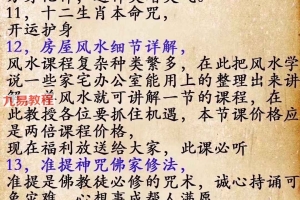 11，十二生肖本命咒，
开运护身
12，房屋风水细节详解，
风水课程复杂种类繁多，在此把风水学
说一些家宅办公室能用上的整理出来讲
风水就可讲解一节的课程，在
此教授各位要抓住机遇，本节课价格应
是两倍课程价格，
现在福利放送给大家，此课必听
13，准提神咒佛家修法，
准提是佛教徒必修的咒术，诚心持诵可
九易教程